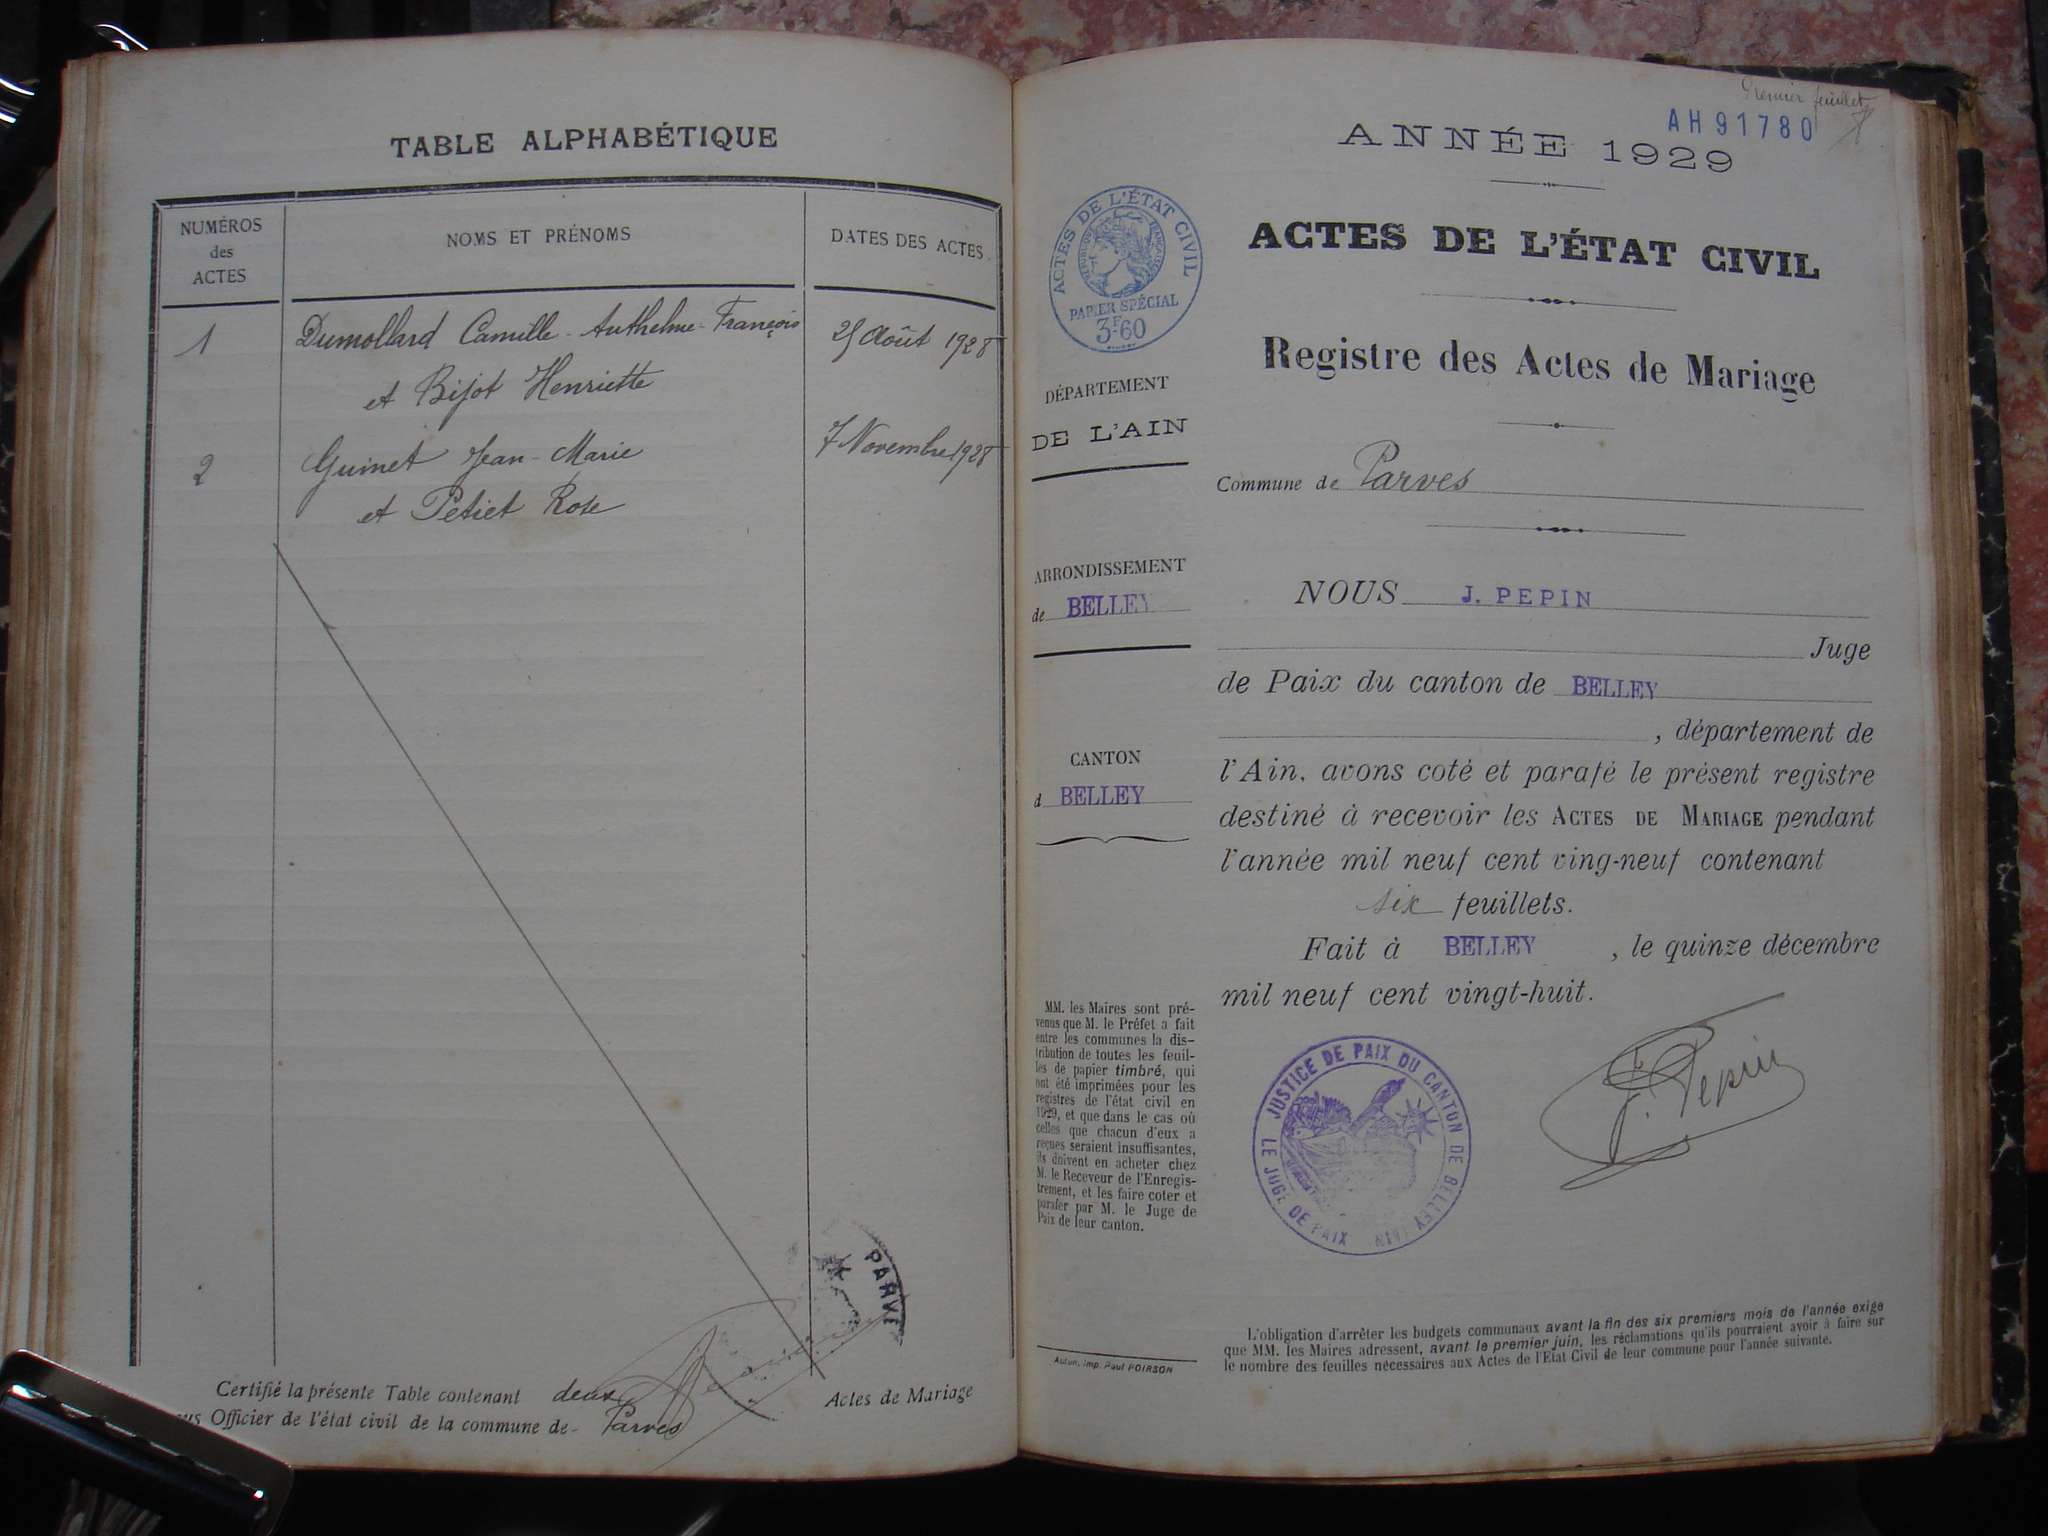 TABLE ALPHABÉTIQUE
NUMÉROS
des
ACTES
NOMS ET PRÉNOMS
DATES DES ACTES
1
Dumollard Camille-Anthelme-François
25 Août 1928
et Bijot Henriette
2
Guinet Jean-Marie
7 Novembre 1928
et Petiet Rose
PARVE
Certifié la présente Table contenant deux Actes de Mariage
Officier de l'état civil de la commune de Parves
Premier feuillet
AH91780
ANNÉE 1929
ACTES DE L'ÉTAT CIVIL
RÉPUBLIQUE FRANÇAISE
PAPIER SPÉCIAL
3F.60
ACTES DE L'ÉTAT CIVIL
Registre des Actes de Mariage
DÉPARTEMENT
DE L'AIN
Commune de Parves
ARRONDISSEMENT
de BELLEY
NOUS J. PEPIN
Juge
de Paix du canton de BELLEY
, département de
CANTON
d BELLEY
l'Ain, avons coté et parafé le présent registre
destiné à recevoir les ACTES DE MARIAGE pendant
l'année mil neuf cent ving-neuf contenant
six feuillets.
Fait à BELLEY , le quinze décembre
mil neuf cent vingt-huit.
MM. les Maires sont pré-
venus que M. le Préfet a fait
entre les communes la dis-
tribution de toutes les feuil-
les de papier timbré, qui
ont été imprimées pour les
registres de l'état civil en
1929, et que dans le cas où
celles que chacun d'eux a
reçues seraient insuffisantes,
ils doivent en acheter chez
M. le Receveur de l'Enregis-
trement, et les faire coter et
parafer par M. le Juge de
Paix de leur canton.
JUSTICE DE PAIX DU CANTON DE BELLEY (AIN)
LE JUGE DE PAIX
J. Pepin
Autun, imp. Paul POIRSON
L'obligation d'arrêter les budgets communaux avant la fin des six premiers mois de l'année exige
que MM. les Maires adressent, avant le premier juin, les réclamations qu'ils pourraient avoir à faire sur
le nombre des feuilles nécessaires aux Actes de l'Etat Civil de leur commune pour l'année suivante.